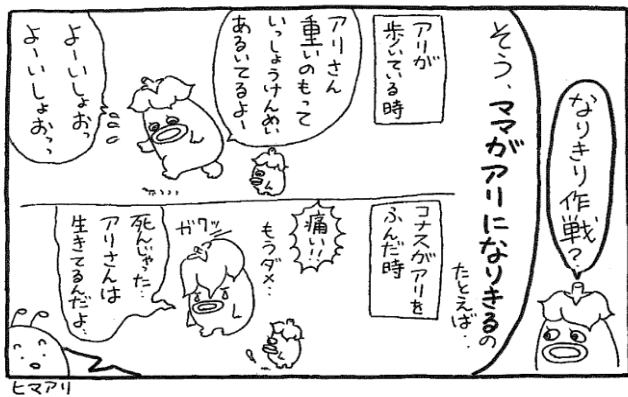 なりきり作戦?
そう、ママがアリになりきるの
たとえば…
アリが
歩いている時
アリさん
重いのもって
いっしょうけんめい
あるいてるよー
よーいしょおっ
よーいしょおっっ
コナスがアリを
ふんだ時
痛い!!
もうダメ…
ガクッ
死んじゃった…
アリさんは
生きてるんだよ…
ヒマアリ